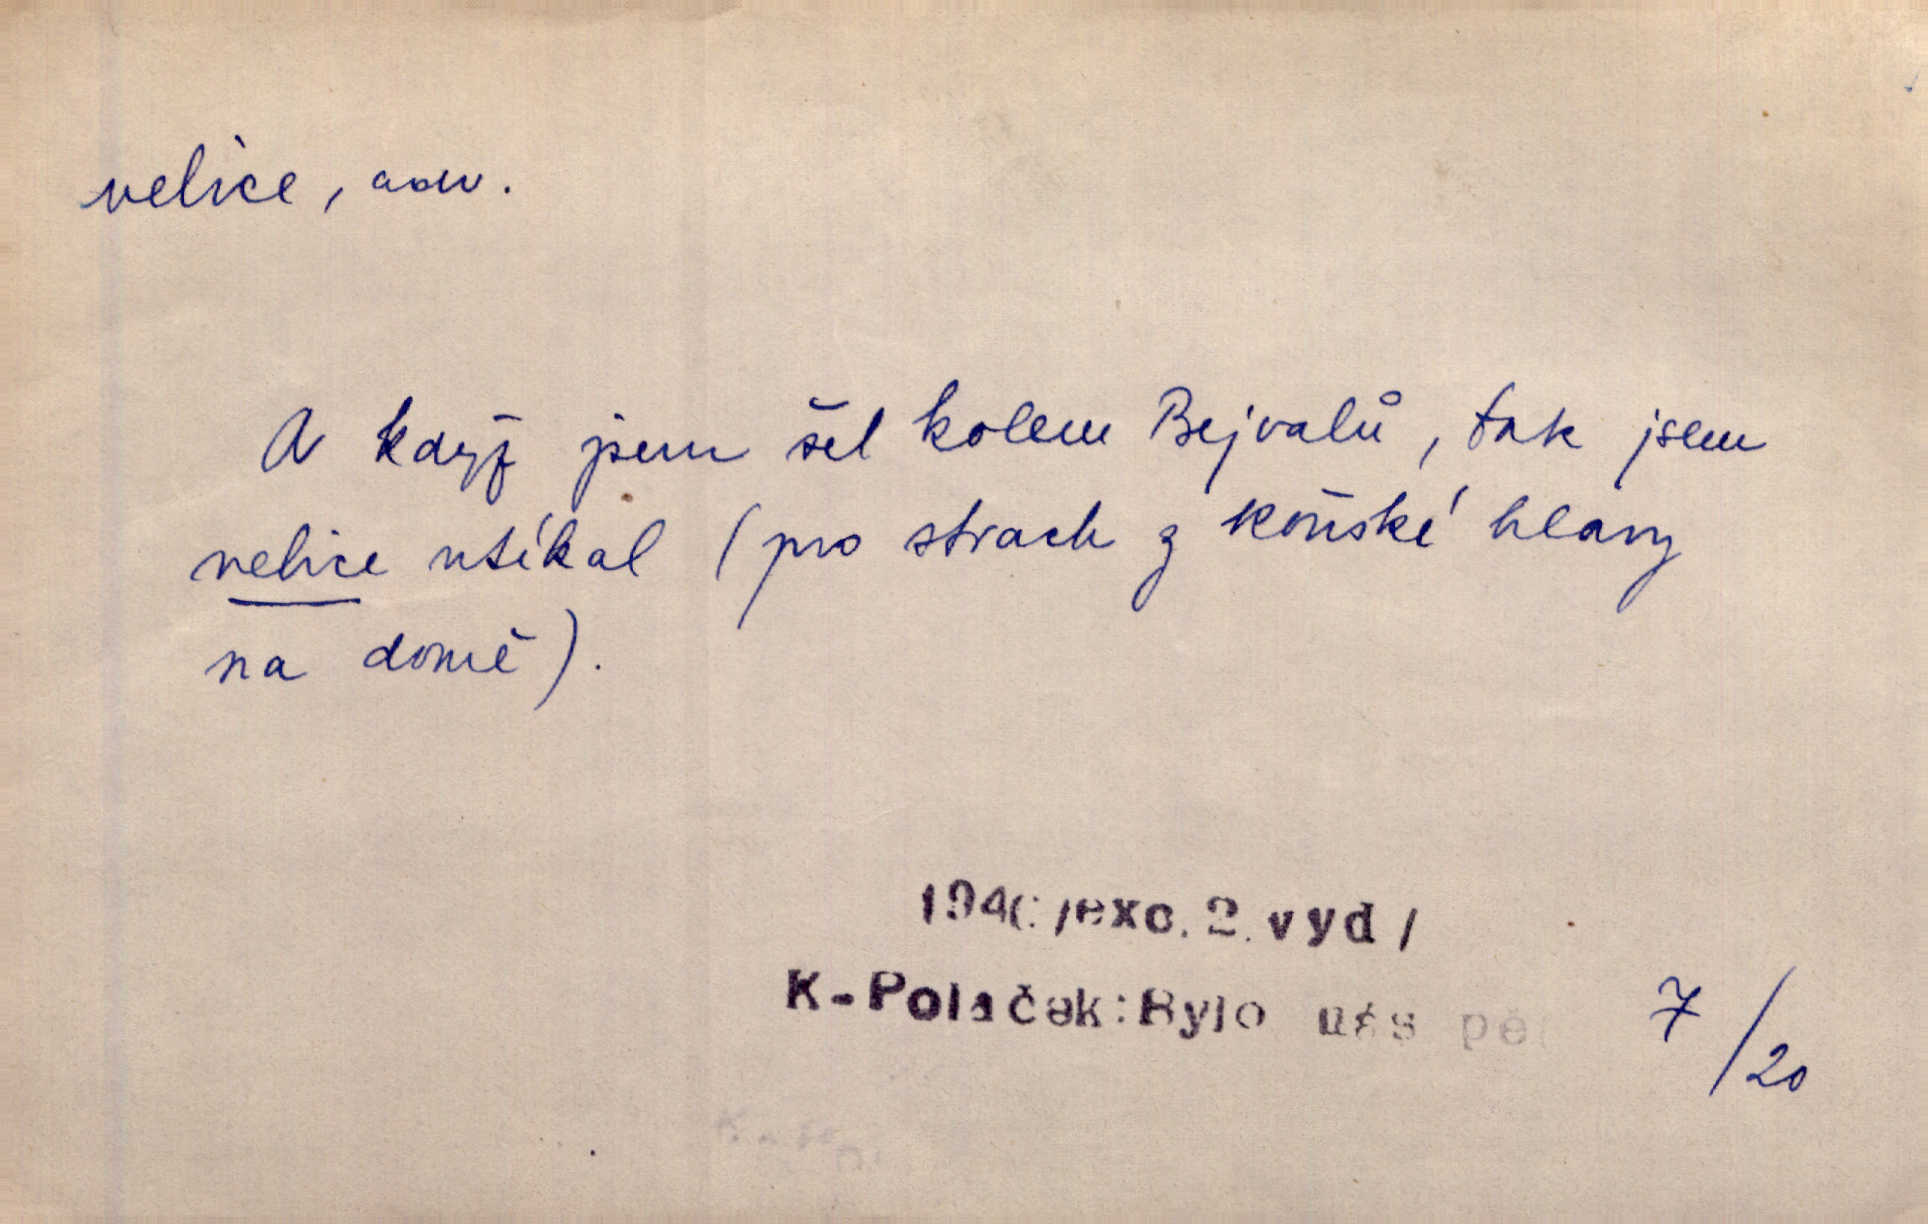 velice, adv.
A když jsem šel kolem Bejvalů, tak jsem
velice utíkal (pro strach z koňské hlavy
na domě).
/exc. 2. vyd /
K-Polaček: Bylo nás
7/20